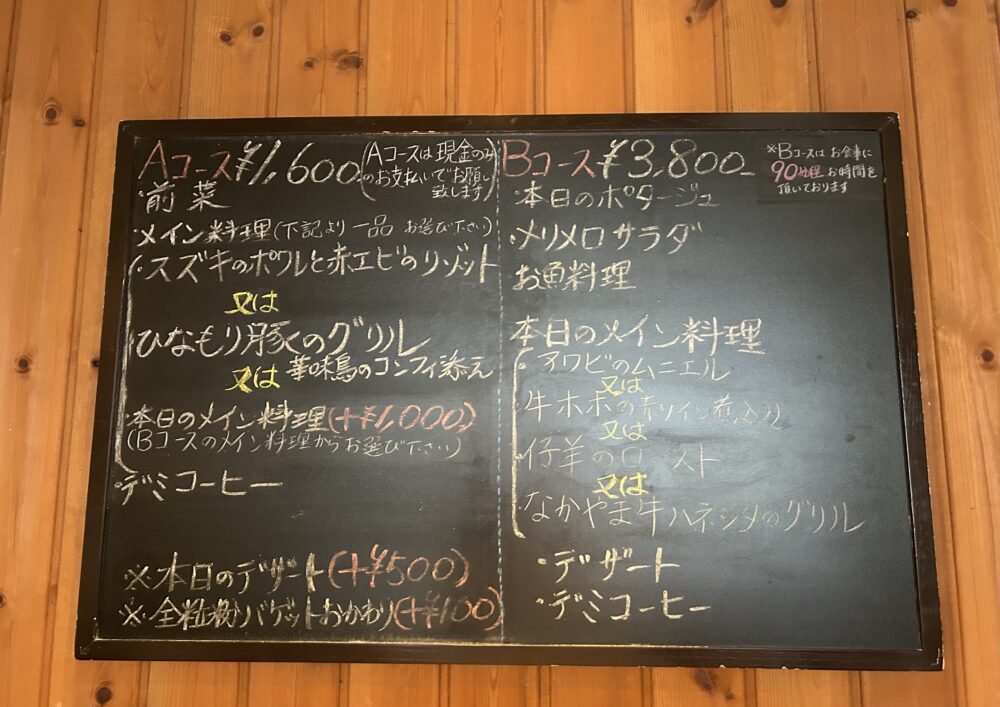 Aコース¥1,600
(Aコースは現金のみ
のお支払いでお願い
致します)
・前菜
・メイン料理(下記より一品お選び下さい)
・スズキのポワレと赤エビのリゾット
又は
ひなもり豚のグリル
華味鳥のコンフィ添え
又は
本日のメイン料理(+¥1,000)
(Bコースのメイン料理からお選び下さい)
・デミコーヒー
※本日のデザート(+¥500)
※全粒粉バゲットおかわり(+¥100)
Bコース¥3,800
※Bコースはお食事に
90分程お時間を
頂いております
・本日のポタージュ
・メリメロサラダ
お魚料理
本日のメイン料理
・アワビのムニエル
又は
牛ホホの赤ワイン煮込み
又は
仔羊のロースト
又は
なかやま牛ハネシタのグリル
・デザート
・デミコーヒー